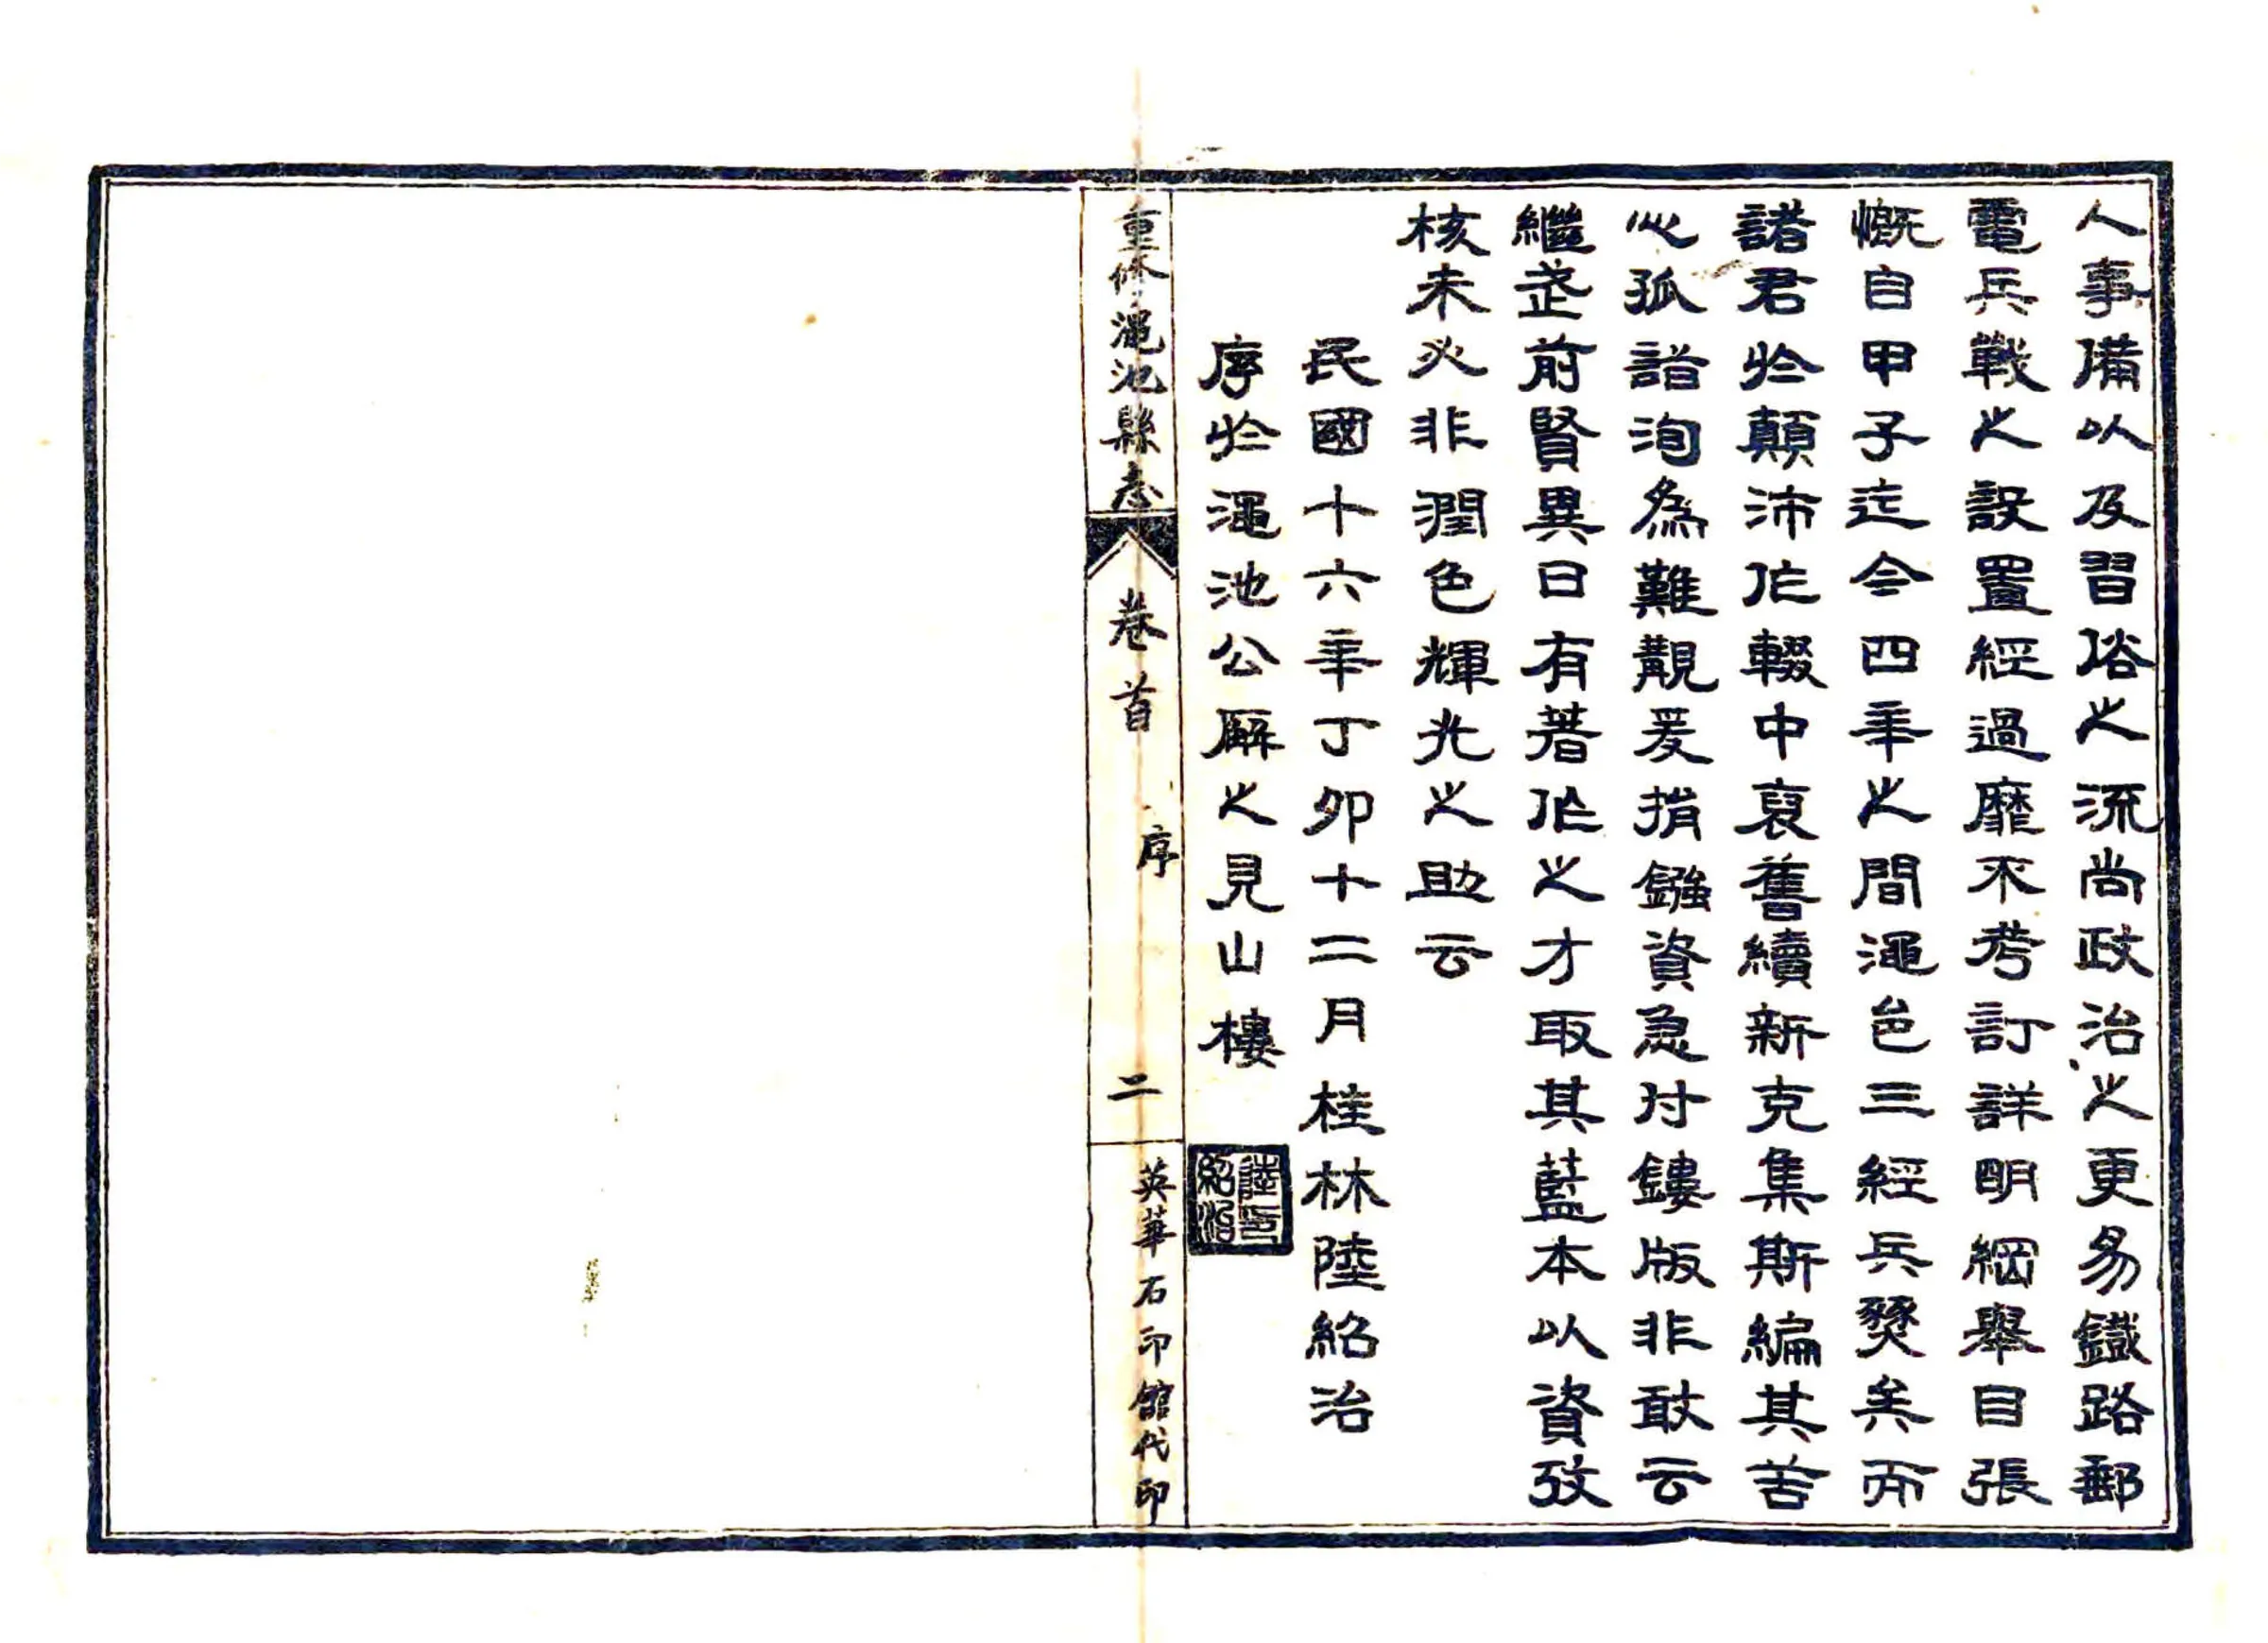 人事備以及習俗之流尚政治之更易鐵路郵
電兵戰之設置經過靡不考訂詳明綱舉目張
慨自甲子迄今四年之間澠邑三經兵燹矣而
諸君於顛沛作輟中裒舊續新克集斯編其苦
心孤詣洵為難覯爰捐鏹資急付鏤版非敢云
繼武前賢異日有著作之才取其藍本以資攷
核未必非潤色輝光之助云
民國十六年丁卯十二月桂林陸紹治
序於澠池公廨之見山樓
陸印
紹治
重修澠池縣志
卷首
序
二
英華石印館代印